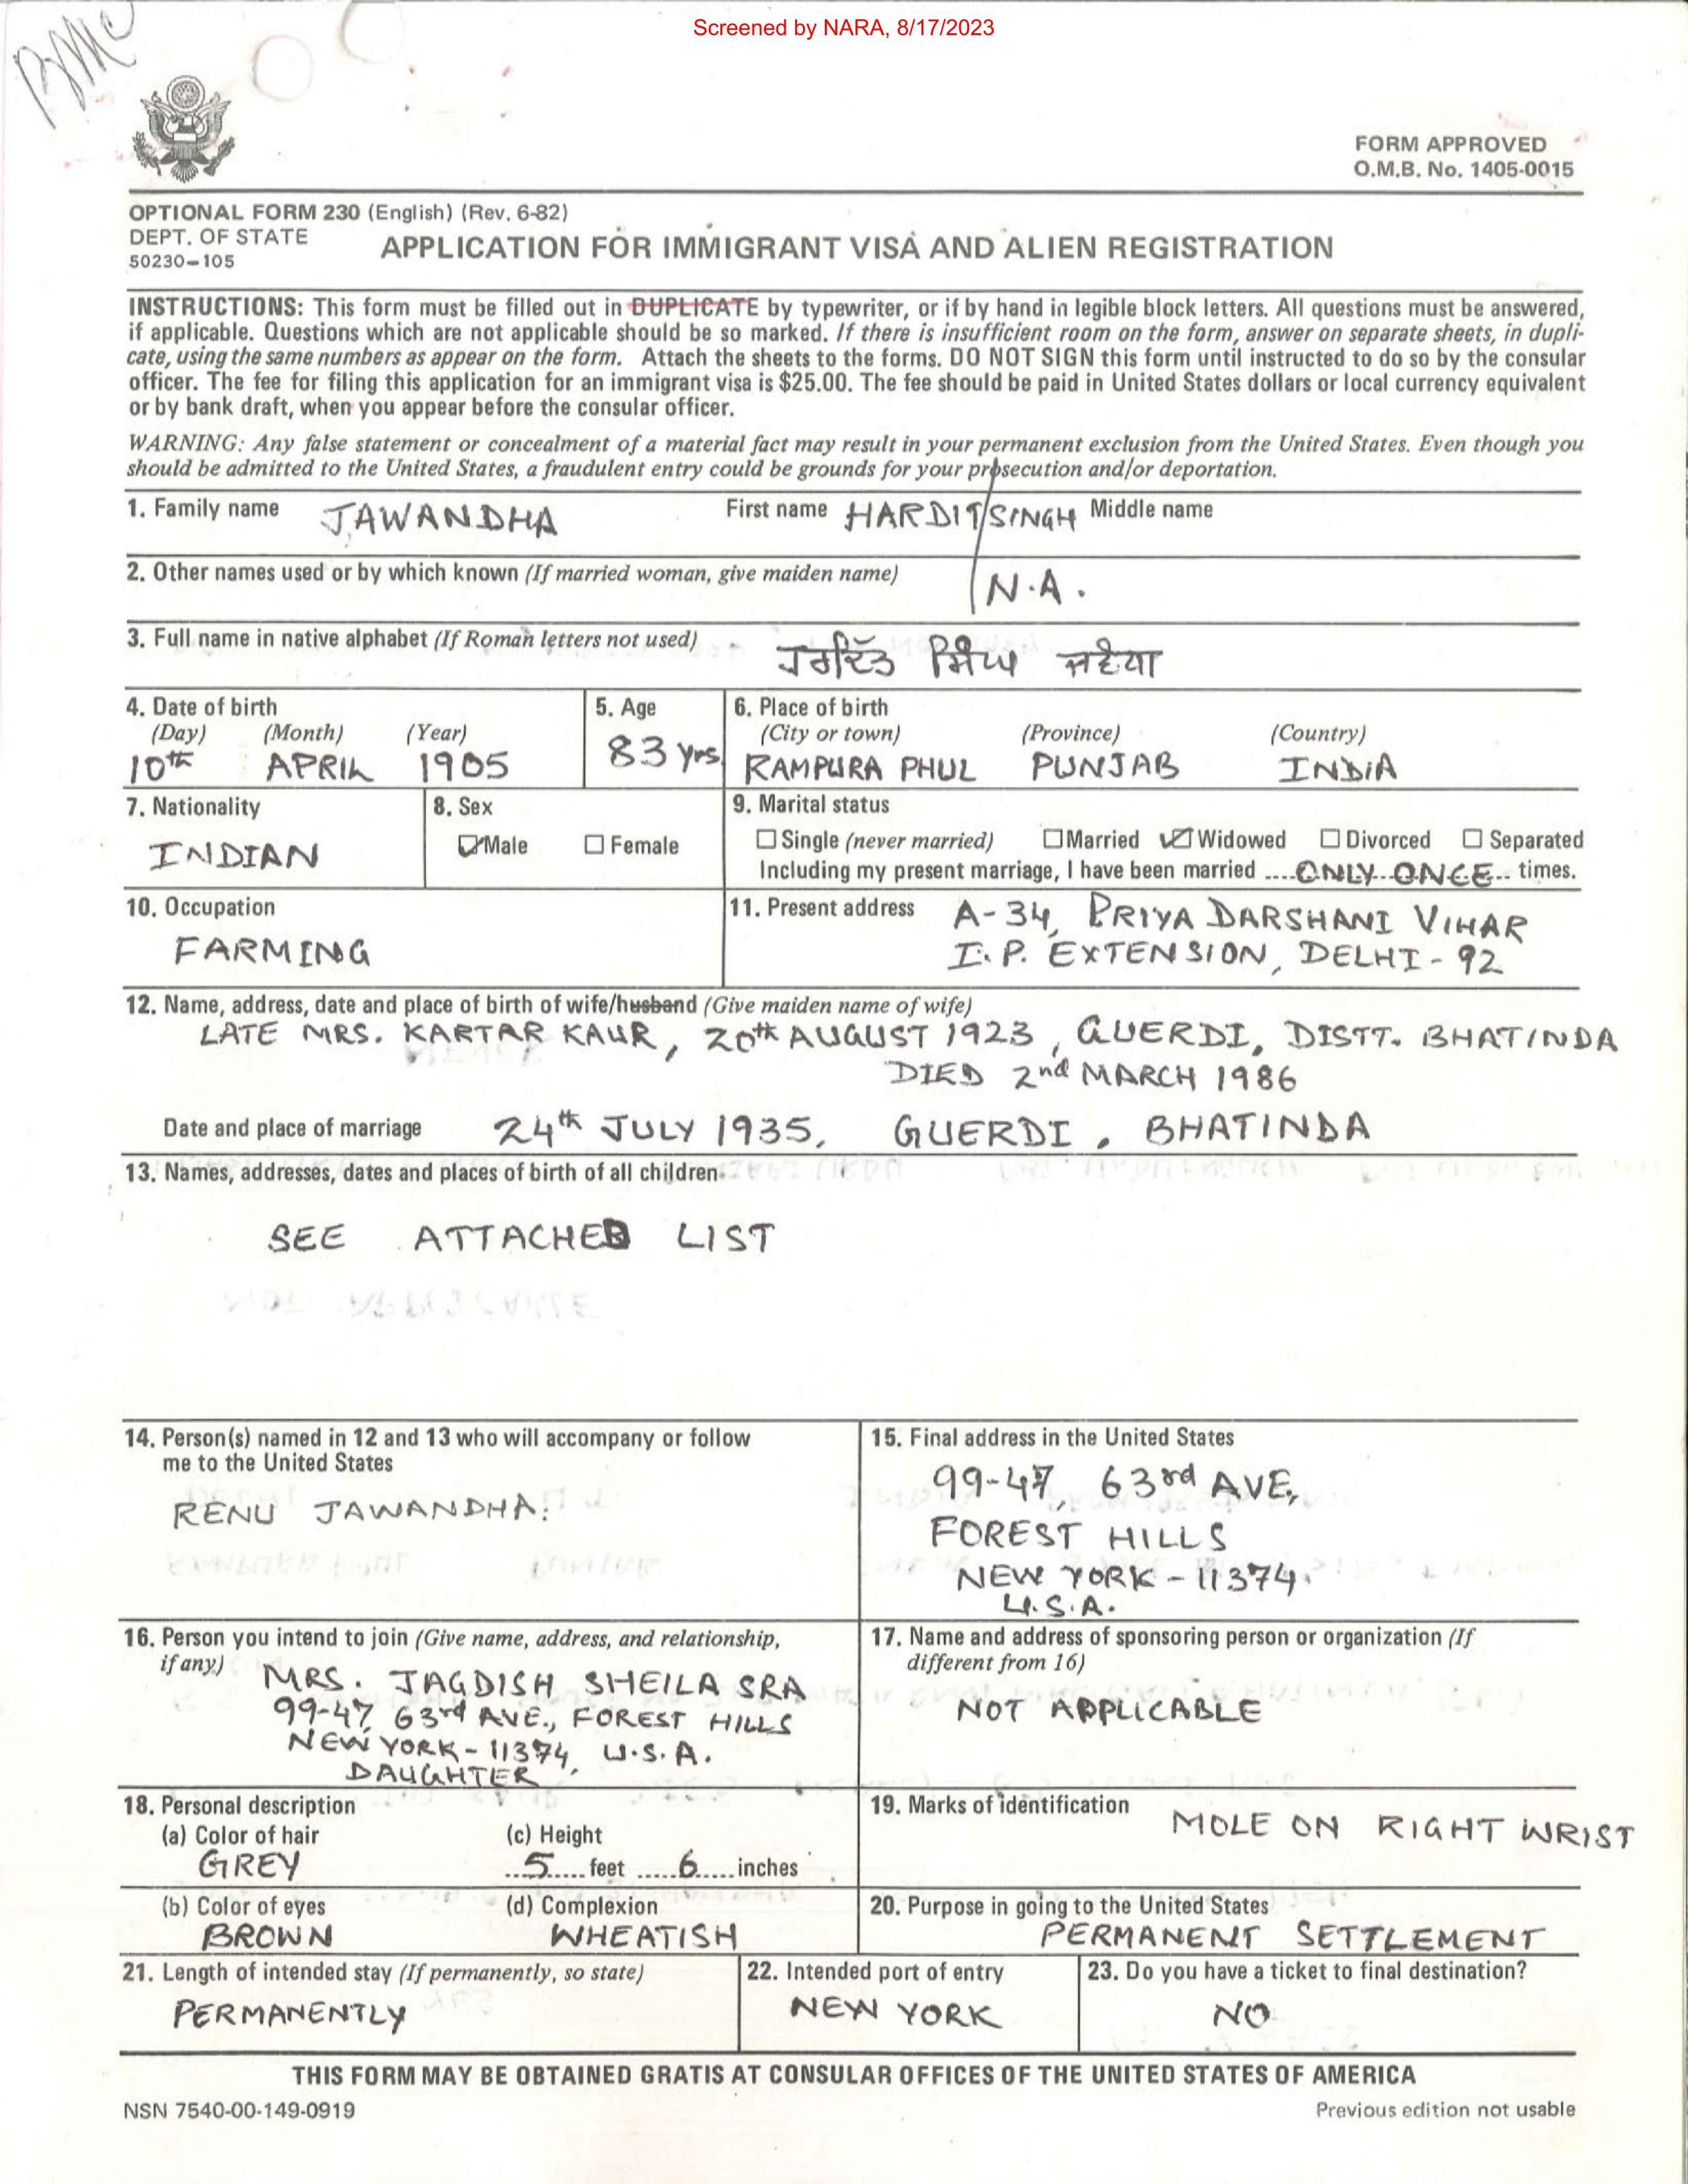 Screened by NARA, 8/17/2023
BMC
FORM APPROVED
O.M.B. No. 1405-0015
OPTIONAL FORM 230 (English) (Rev. 6-82)
DEPT. OF STATE
50230-105
APPLICATION FOR IMMIGRANT VISA AND ALIEN REGISTRATION
INSTRUCTIONS: This form must be filled out in DUPLICATE by typewriter, or if by hand in legible block letters. All questions must be answered,
if applicable. Questions which are not applicable should be so marked. If there is insufficient room on the form, answer on separate sheets, in dupli-
cate, using the same numbers as appear on the form. Attach the sheets to the forms. DO NOT SIGN this form until instructed to do so by the consular
officer. The fee for filing this application for an immigrant visa is $25.00. The fee should be paid in United States dollars or local currency equivalent
or by bank draft, when you appear before the consular officer.
WARNING: Any false statement or concealment of a material fact may result in your permanent exclusion from the United States. Even though you
should be admitted to the United States, a fraudulent entry could be grounds for your prosecution and/or deportation.
1. Family name JAWANDHA First name HARDIT/SINGH Middle name
2. Other names used or by which known (If married woman, give maiden name) N.A.
3. Full name in native alphabet (If Roman letters not used) ਹਰਦਿੱਤ ਸਿੰਘ
4. Date of birth 5. Age 6. Place of birth
(Day) (Month) (Year) (City or town) (Province) (Country)
10th APRIL 1905 83 yrs RAMPURA PHUL PUNJAB INDIA
7. Nationality 8. Sex 9. Marital status
INDIAN Male Female Single (never married) Married Widowed Divorced Separated
Including my present marriage, I have been married ....ONLY ONCE.. times.
10. Occupation 11. Present address A-34, PRIYA DARSHANI VIHAR
FARMING I.P. EXTENSION, DELHI-92
12. Name, address, date and place of birth of wife/husband (Give maiden name of wife)
LATE MRS. KARTAR KAUR, 20th AUGUST 1923, GUERDI, DISTT. BHATINDA
DIED 2nd MARCH 1986
Date and place of marriage 24th JULY 1935, GUERDI, BHATINDA
13. Names, addresses, dates and places of birth of all children.
SEE ATTACHED LIST
14. Person(s) named in 12 and 13 who will accompany or follow
me to the United States
RENU JAWANDHA.
15. Final address in the United States
99-47, 63rd AVE,
FOREST HILLS
NEW YORK-11374.
U.S.A.
16. Person you intend to join (Give name, address, and relationship,
if any)
MRS. JAGDISH SHEILA SRA
99-47, 63rd AVE., FOREST HILLS
NEW YORK-11374, U.S.A.
DAUGHTER
17. Name and address of sponsoring person or organization (If
different from 16)
NOT APPLICABLE
18. Personal description
(a) Color of hair (c) Height
GREY ..5.... feet .....6..... inches
19. Marks of identification MOLE ON RIGHT WRIST
(b) Color of eyes (d) Complexion
BROWN WHEATISH
20. Purpose in going to the United States
PERMANENT SETTLEMENT
21. Length of intended stay (If permanently, so state) 22. Intended port of entry 23. Do you have a ticket to final destination?
PERMANENTLY NEW YORK NO
THIS FORM MAY BE OBTAINED GRATIS AT CONSULAR OFFICES OF THE UNITED STATES OF AMERICA
NSN 7540-00-149-0919 Previous edition not usable